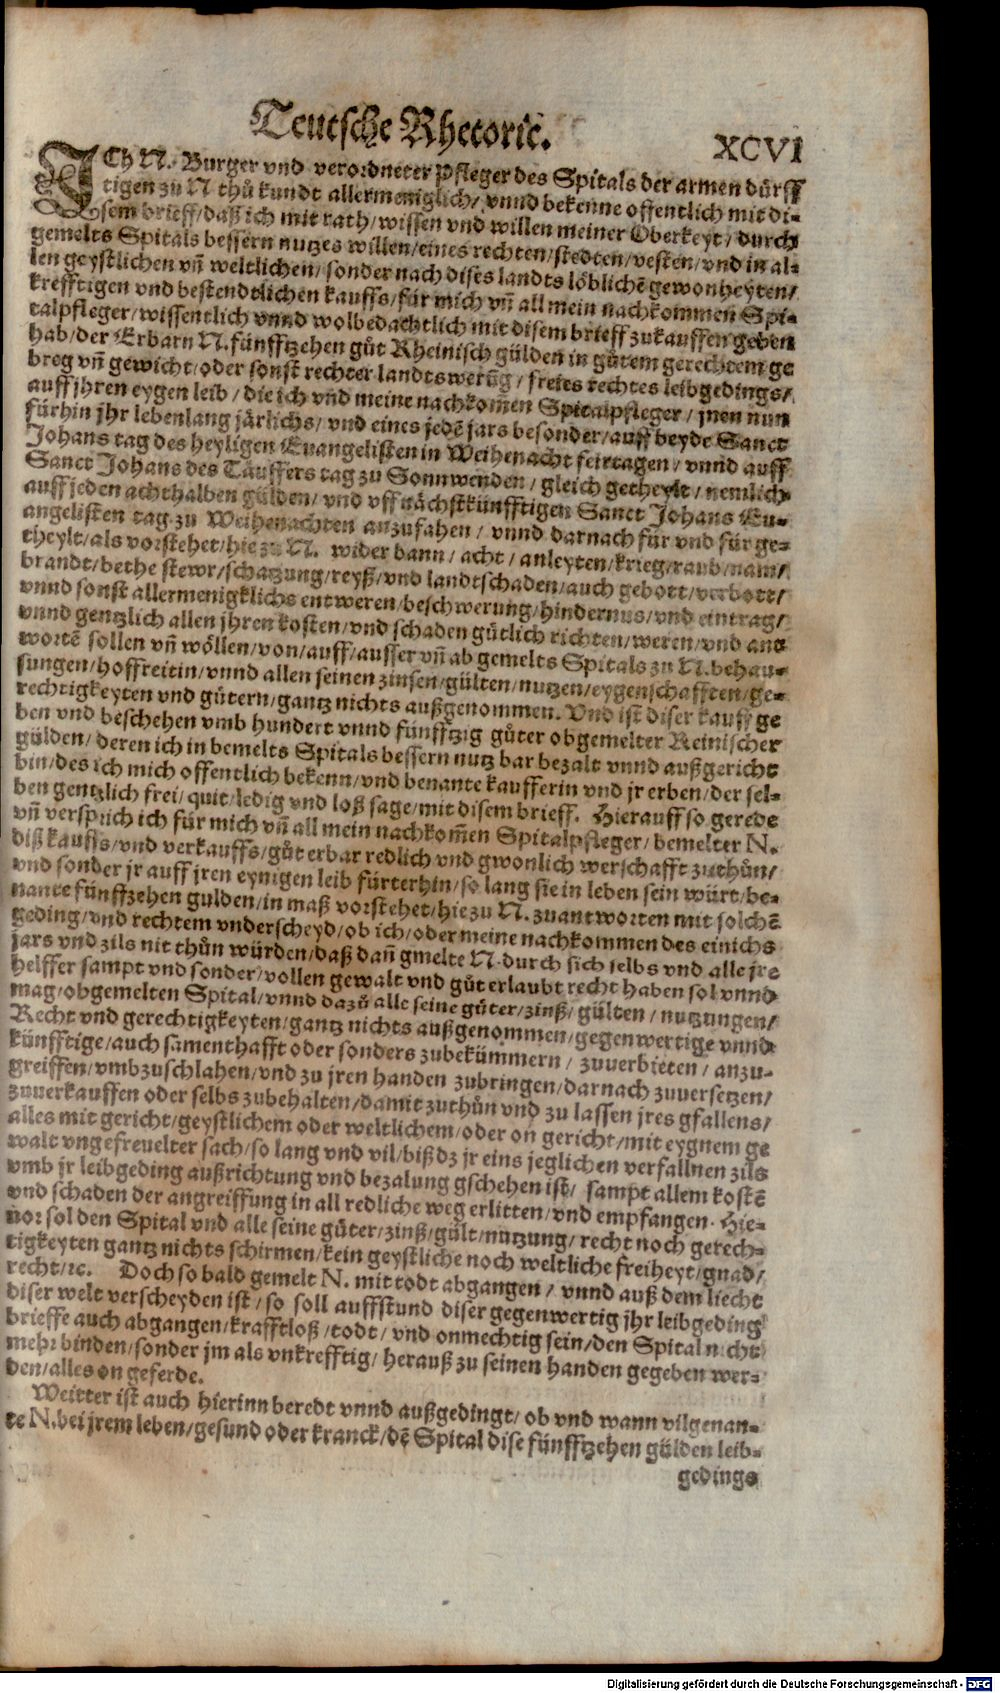 Teutsche Rhetoric.
XCVI
ICh N. Burger vnd verordneter Pfleger des Spitals der armen dürff
tigen zu N thů kundt allermeniglich/ vnnd bekenne offentlich mit di-
sem brieff/ daß ich mit rath/ wissen vnd willen meiner Oberkeyt/ durch
gemelts Spitals bessern nutzes willen/ eines rechten/ stedten/ vesten/ vnd in al-
len geystlichen vñ weltlichen/ sonder nach dises landts löblichẽ gewonheyten/
krefftigen vnd bestendtlichen kauffs/ für mich vñ all mein nachkommen Spi-
talpfleger/ wissentlich vnnd wolbedachtlich mit disem brieff zukauffen geben
hab/ der Erbarn N. fünfftzehen gůt Rheinisch gülden in gůtem gerechtem ge
breg vñ gewicht/ oder sonst rechter landtswerũg/ freies rechtes leibgedings/
auff jhren eygen leib/ die ich vnd meine nachkom̃en Spitalpfleger/ jnen nun
fürhin jhr lebenlang järlichs/ vnd eines jedẽ jars besonder/ auff beyde Sanct
Johans tag des heyligen Euangelisten in Weihenacht feirtagen/ vnnd auff
Sanct Johans des Täuffers tag zu Sonnwenden/ gleich getheylt/ nemlich
auff jeden achthalben gülden/ vnd vff nächstkünfftigen Sanct Johans Eu-
angelisten tag zu Weihenachten anzufahen/ vnnd darnach für vnd für ge-
theylt/ als vorstehet/ hie zu N. wider bann/ acht/ anleyten/ krieg/ raub/ nam/
brandt/ bethe stewr/ schatzung/ reyß/ vnd landtschaden/ auch gebott/ verbott/
vnnd sonst allermenigklichs entweren/ beschwerung/ hindernus/ vnd eintrag/
vnnd gentzlich allen jhren kosten/ vnd schaden gütlich richten/ weren/ vnd ant
wortẽ sollen vñ wöllen/ von/ auff/ ausser vñ ab gemelts Spitals zu N. behau-
sungen/ hoffreitin/ vnnd allen seinen zinsen/ gülten/ nutzen/ eygenschafften/ ge-
rechtigkeyten vnd gůtern/ gantz nichts außgenommen. Vnd ist diser kauff ge
ben vnd beschehen vmb hundert vnnd fünfftzig gůter obgemelter Reinischer
gülden/ deren ich in bemelts Spitals bessern nutz bar bezalt vnnd außgericht
bin/ des ich mich offentlich bekenn/ vnd benante kaufferin vnd jr erben/ der sel-
ben gentzlich frei/ quit/ ledig vnd loß sage/ mit disem brieff. Hierauff so gerede
vñ versprich ich für mich vñ all mein nachkom̃en Spitalpfleger/ bemelter N.
diß kauffs/ vnd verkauffs/ gůt erbar redlich vnd gwonlich werschafft zuthůn/
vnd sonder jr auff jren eynigen leib fürterhin/ so lang sie in leben sein würt/ be-
nante fünffzehen gulden/ in maß vorstehet/ hie zu N. zuantworten mit solchẽ
geding/ vnd rechtem vnderscheyd/ ob ich/ oder meine nachkommen des einichs
jars vnd zils nit thůn würden/ daß dañ gmelte N. durch sich selbs vnd alle jre
helffer sampt vnd sonder/ vollen gewalt vnd gůt erlaubt recht haben sol vnnd
mag/ obgemelten Spital/ vnnd dazů alle seine gůter/ zinß/ gülten/ nutzungen/
Recht vnd gerechtigkeyten/ gantz nichts außgenommen/ gegenwertige vnnd
künfftige/ auch samenthafft oder sonders zubekümmern/ zuuerbieten/ anzu-
greiffen/ vmbzuschlahen/ vnd zu jren handen zubringen/ darnach zuuersetzen/
zuuerkauffen oder selbs zubehalten/ damit zuthůn vnd zu lassen jres gfallens/
alles mit gericht/ geystlichem oder weltlichem/ oder on gericht/ mit eygnem ge
walt vngefreuelter sach/ so lang vnd vil/ biß dz jr eins jeglichen verfallnen zils
vmb jr leibgeding außrichtung vnd bezalung gschehen ist/ sampt allem kostẽ
vnd schaden der angreiffung in all redliche weg erlitten/ vnd empfangen. Hie-
uor sol den Spital vnd alle seine gůter/ zinß/ gült/ nutzung/ recht noch gerech-
tigkeyten gantz nichts schirmen/ kein geystliche noch weltliche freiheyt/ gnad/
recht/ ꝛc. Doch so bald gemelt N. mit todt abgangen/ vnnd auß dem liecht
diser welt verscheyden ist/ so soll auffstund diser gegenwertig jhr leibgeding
brieffe auch abgangen/ krafftloß/ todt/ vnd onmechtig sein/ den Spital nicht
mehr binden/ sonder jm als vnkrefftig/ herauß zu seinen handen gegeben wer-
den/ alles on geferde.
Weitter ist auch hierinn beredt vnnd außgedingt/ ob vnd wann vilgenan-
te N. bei jrem leben/ gesund oder kranck/ dẽ Spital dise fünfftzehen gülden leib-
gedings
Digitalisierung gefördert durch die Deutsche Forschungsgemeinschaft - DFG